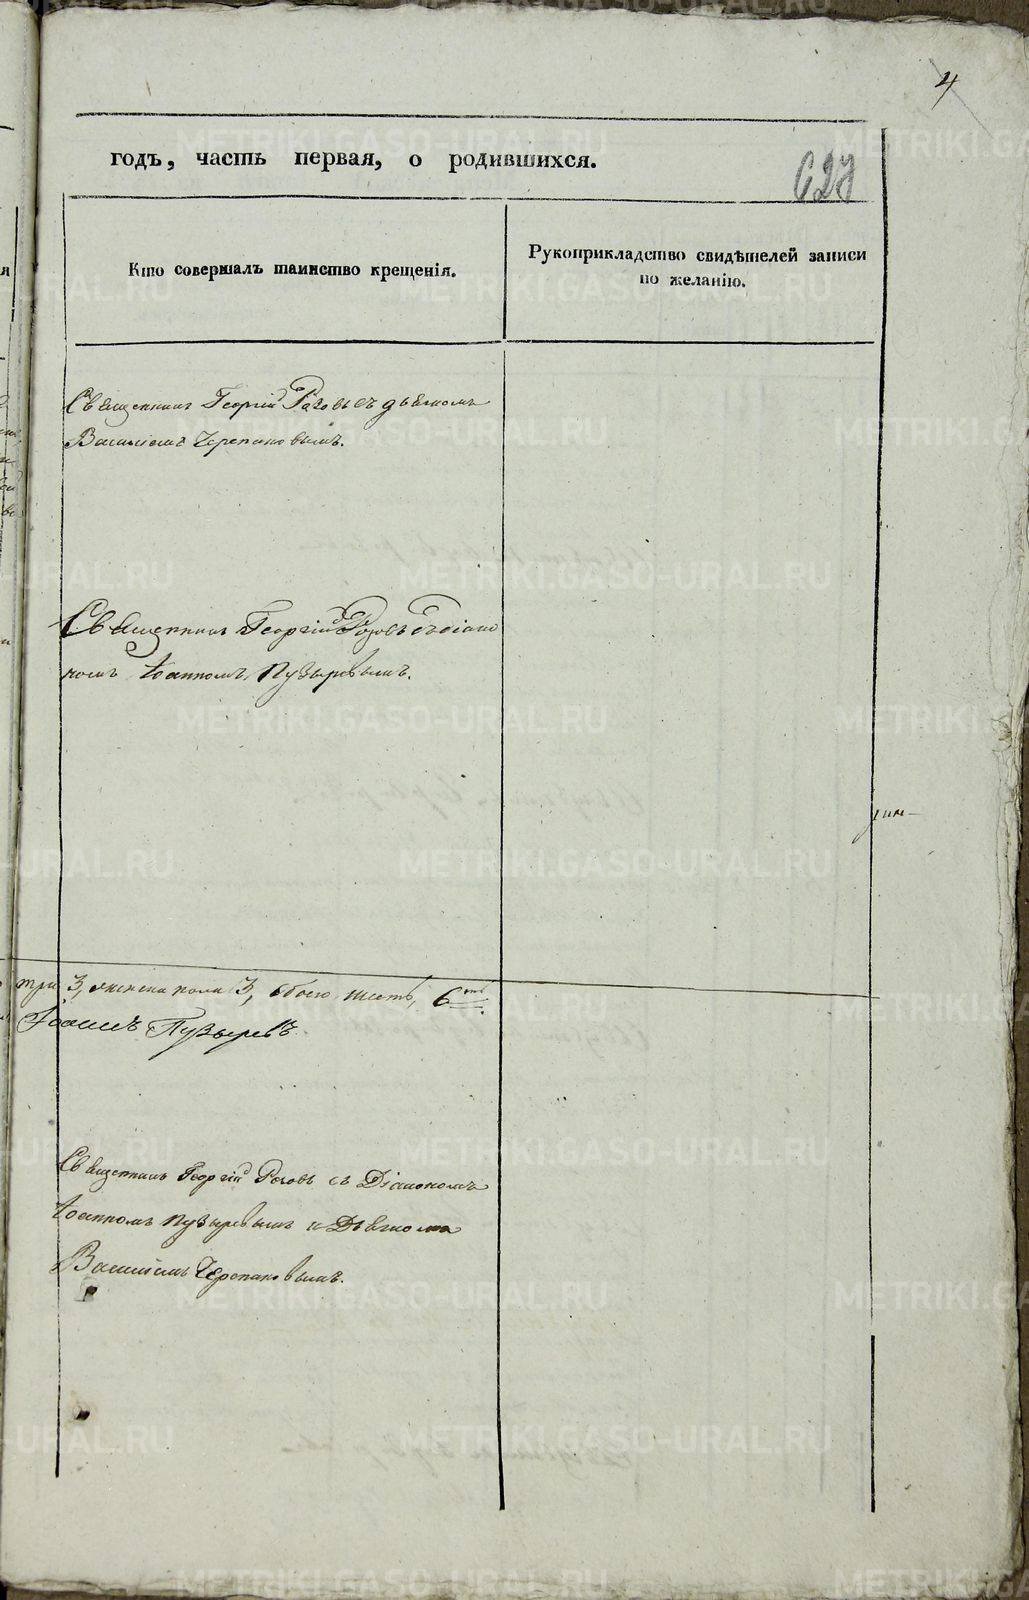 4
годъ, часть первая, о родившихся.
627
Кто совершалъ таинство крещенія.
Рукоприкладство свидѣтелей записи
по желанію.
Священникъ Георгій съ дьячкомъ
Василіемъ Черепановымъ.
Священникъ Георгій съ діако
номъ Іоанномъ Пузыревымъ.
три 3, женска пола 3, обоего шесть, 6ть
Іоаннъ Пузыревъ
Священникъ Георгій съ Діакономъ
Іоанномъ Пузыревымъ и Дьячкомъ
Василіемъ Черепановымъ.
METRIKI.GASO-URAL.RU